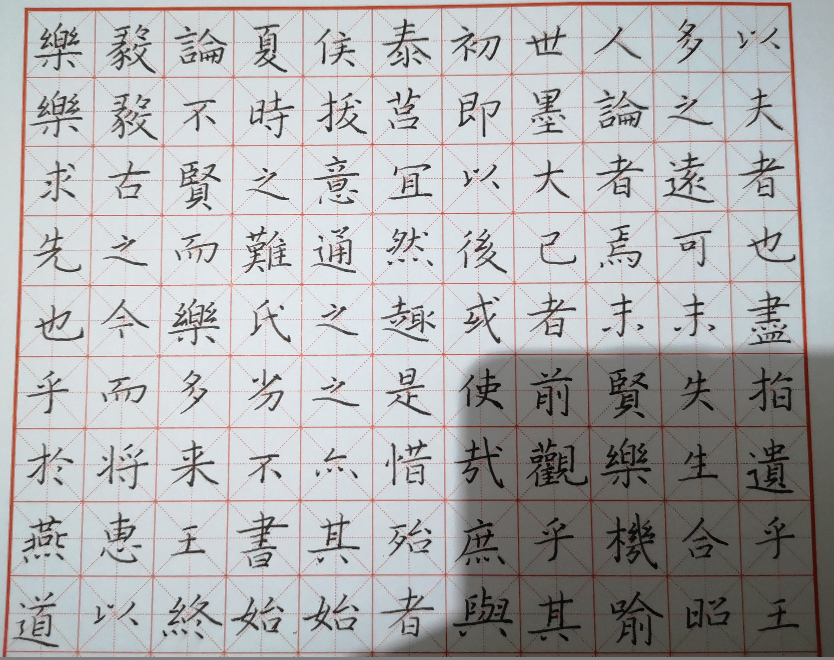 樂毅論夏侯泰初世人多以
樂毅不時拔莒即墨論之夫
求古賢之意冝以大者遠者
先之而難通然後已焉可也
也今樂氏之趣或者未未盡
乎而多劣之是使前賢失指
於将来不亦惜哉觀樂生遺
燕惠王書其殆庶乎機合乎
道以終始始者與其喻昭王